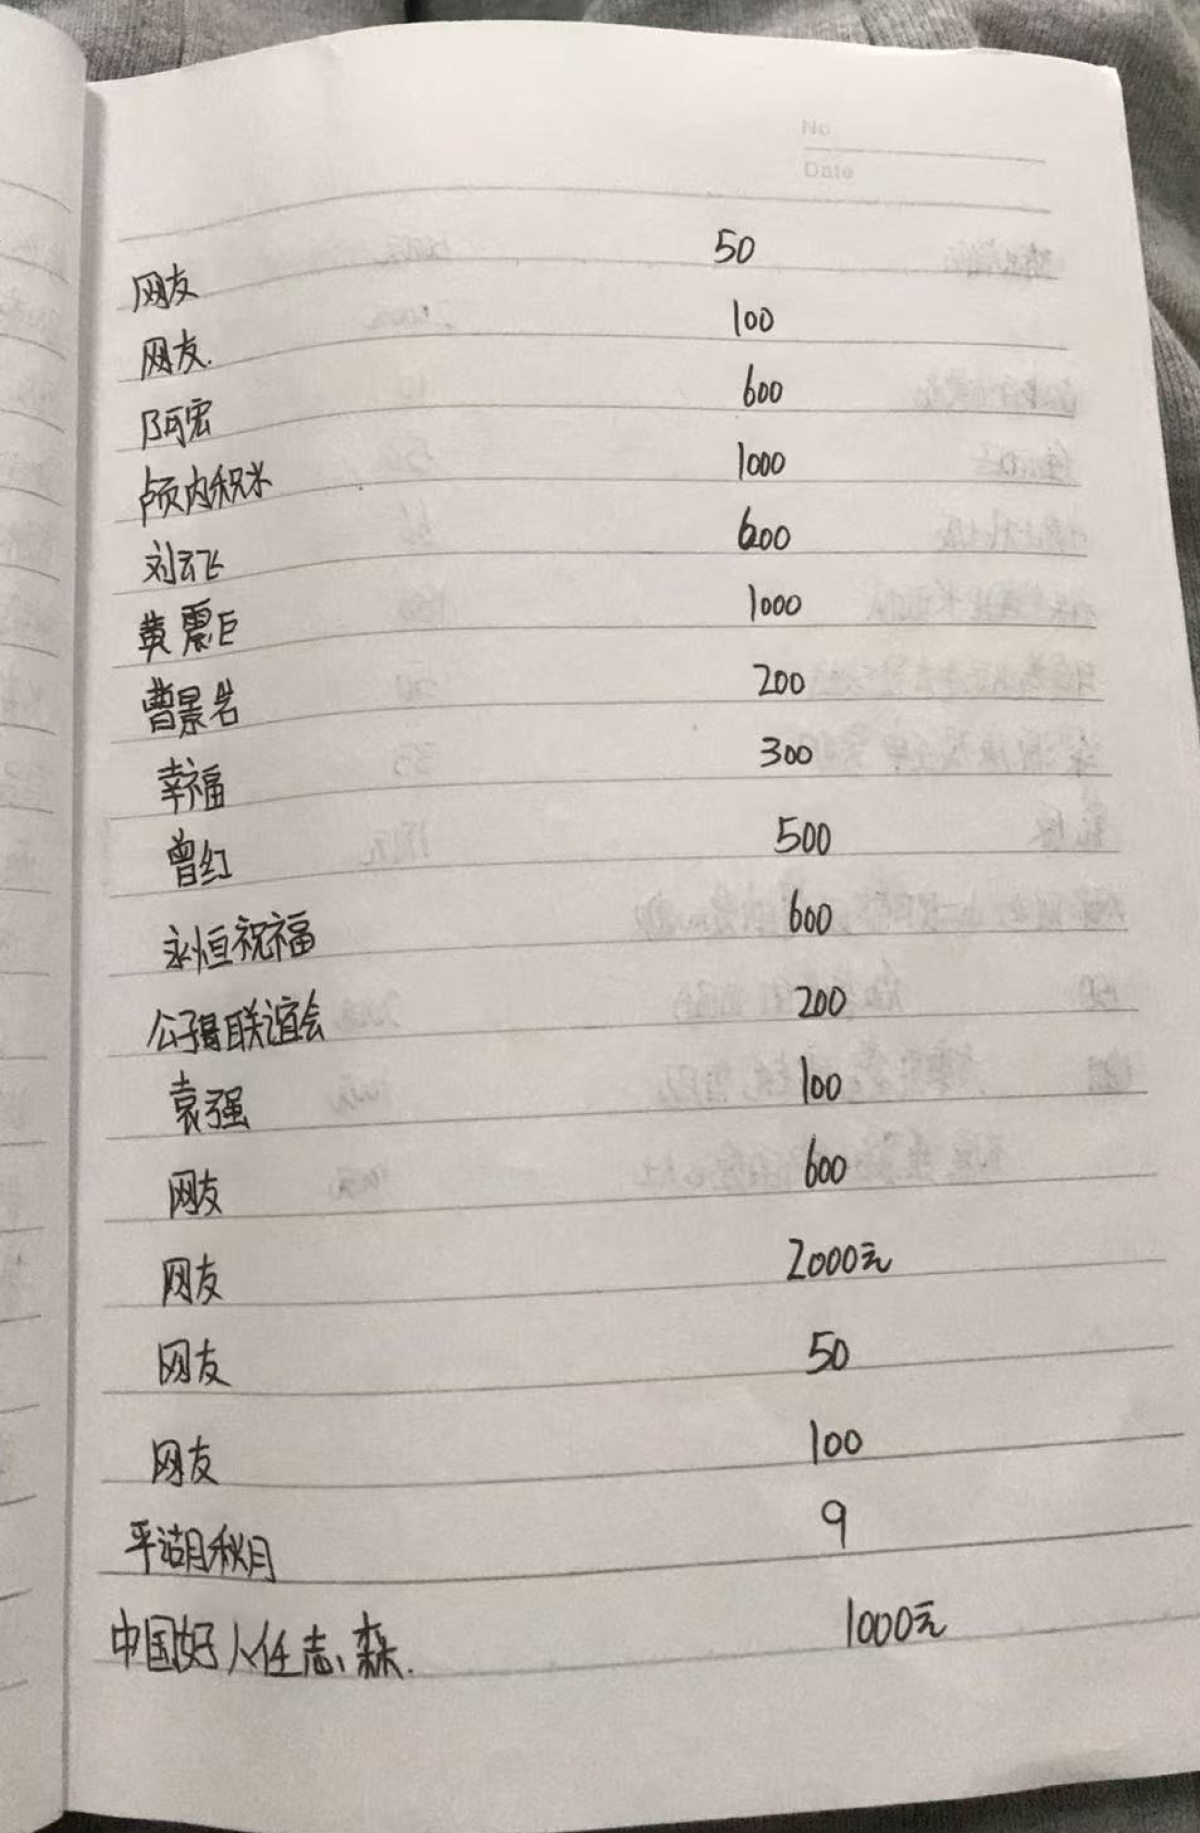 No
Date
网友 50
网友. 100
阿宏 600
颅内积水 1000
刘云飞 600
黄震巨 1000
曹景岩 200
幸福 300
曾红 500
永恒祝福 600
公子哥联谊会 200
袁强 100
网友 600
网友 2000元
网友 50
网友 100
平湖秋月 9
中国好人任志森. 1000元